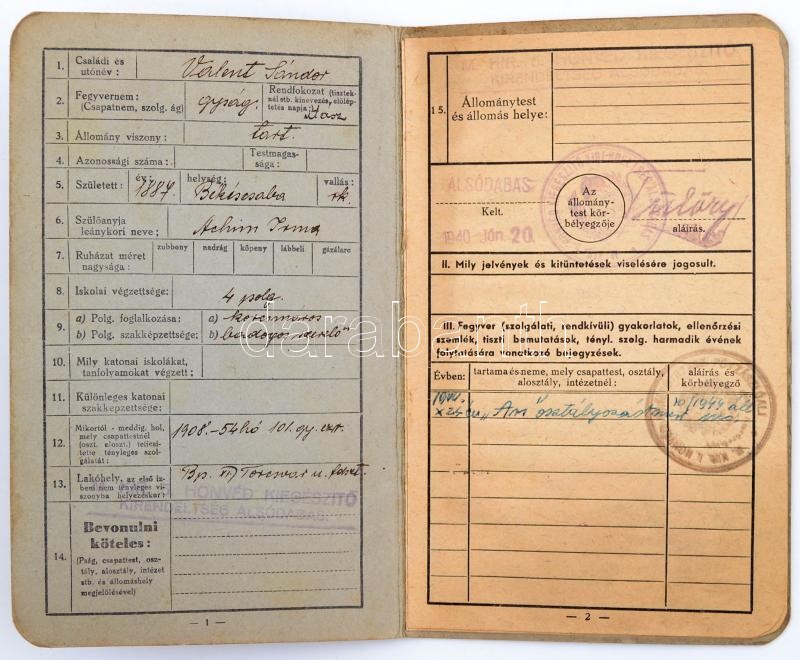 1. Családi és utónév: Valent Sándor
2. Fegyvernem: (Csapatnem, szolg. ág) gység.
Rendfokozat (tiszteknél stb. kinevezés, előléptetés napja:
3. Állomány viszony: tart.
4. Azonossági száma:
Testmagassága:
5. Született: év: 1887 helység: Békéscsaba vallás: rk.
6. Szülőanyja leánykori neve: Achim Irma
7. Ruházat méret nagysága: zubbony nadrág köpeny lábbeli gázálarc
8. Iskolai végzettsége: 4 polg.
9. a) Polg. foglalkozása: a) kocsmáros
b) Polg. szakképzettsége: b)
10. Mily katonai iskolákat, tanfolyamokat végzett:
11. Különleges katonai szakképzettsége:
12. Mikortól - meddig, hol, mely csapattestnél (oszt. aloszt.) teljesítette tényleges szolgálatát:
1908.-54 hó 101. gy. ezr.
13. Lakóhely, az első ízbeni nem tényleges viszonyba helyezéskor:
HONVÉD KIEGÉSZITŐ
KIRENDELTSÉG ALSÓDABAS.
14. Bevonulni köteles:
(Pság, csapattest, osztály, alosztály, intézet stb. és állomáshely megjelölésével)
— 1 —
KIREND
15. Állománytest és állomás helye:
ALSÓDABAS
Kelt.
1940 Jún. 20.
Az állománytest körbélyegzője
aláírás.
II. Mily jelvények és kitüntetések viselésére jogosult.
III. Fegyver (szolgálati, rendkívüli) gyakorlatok, ellenőrzési
szemlék, tiszti bemutatások, tényl. szolg. harmadik évének
folytatására vonatkozó bejegyzések.
Évben: tartama és neme, mely csapattest, osztály, alosztály, intézetnél: aláírás és körbélyegző
1944.
— 2 —
darabanth